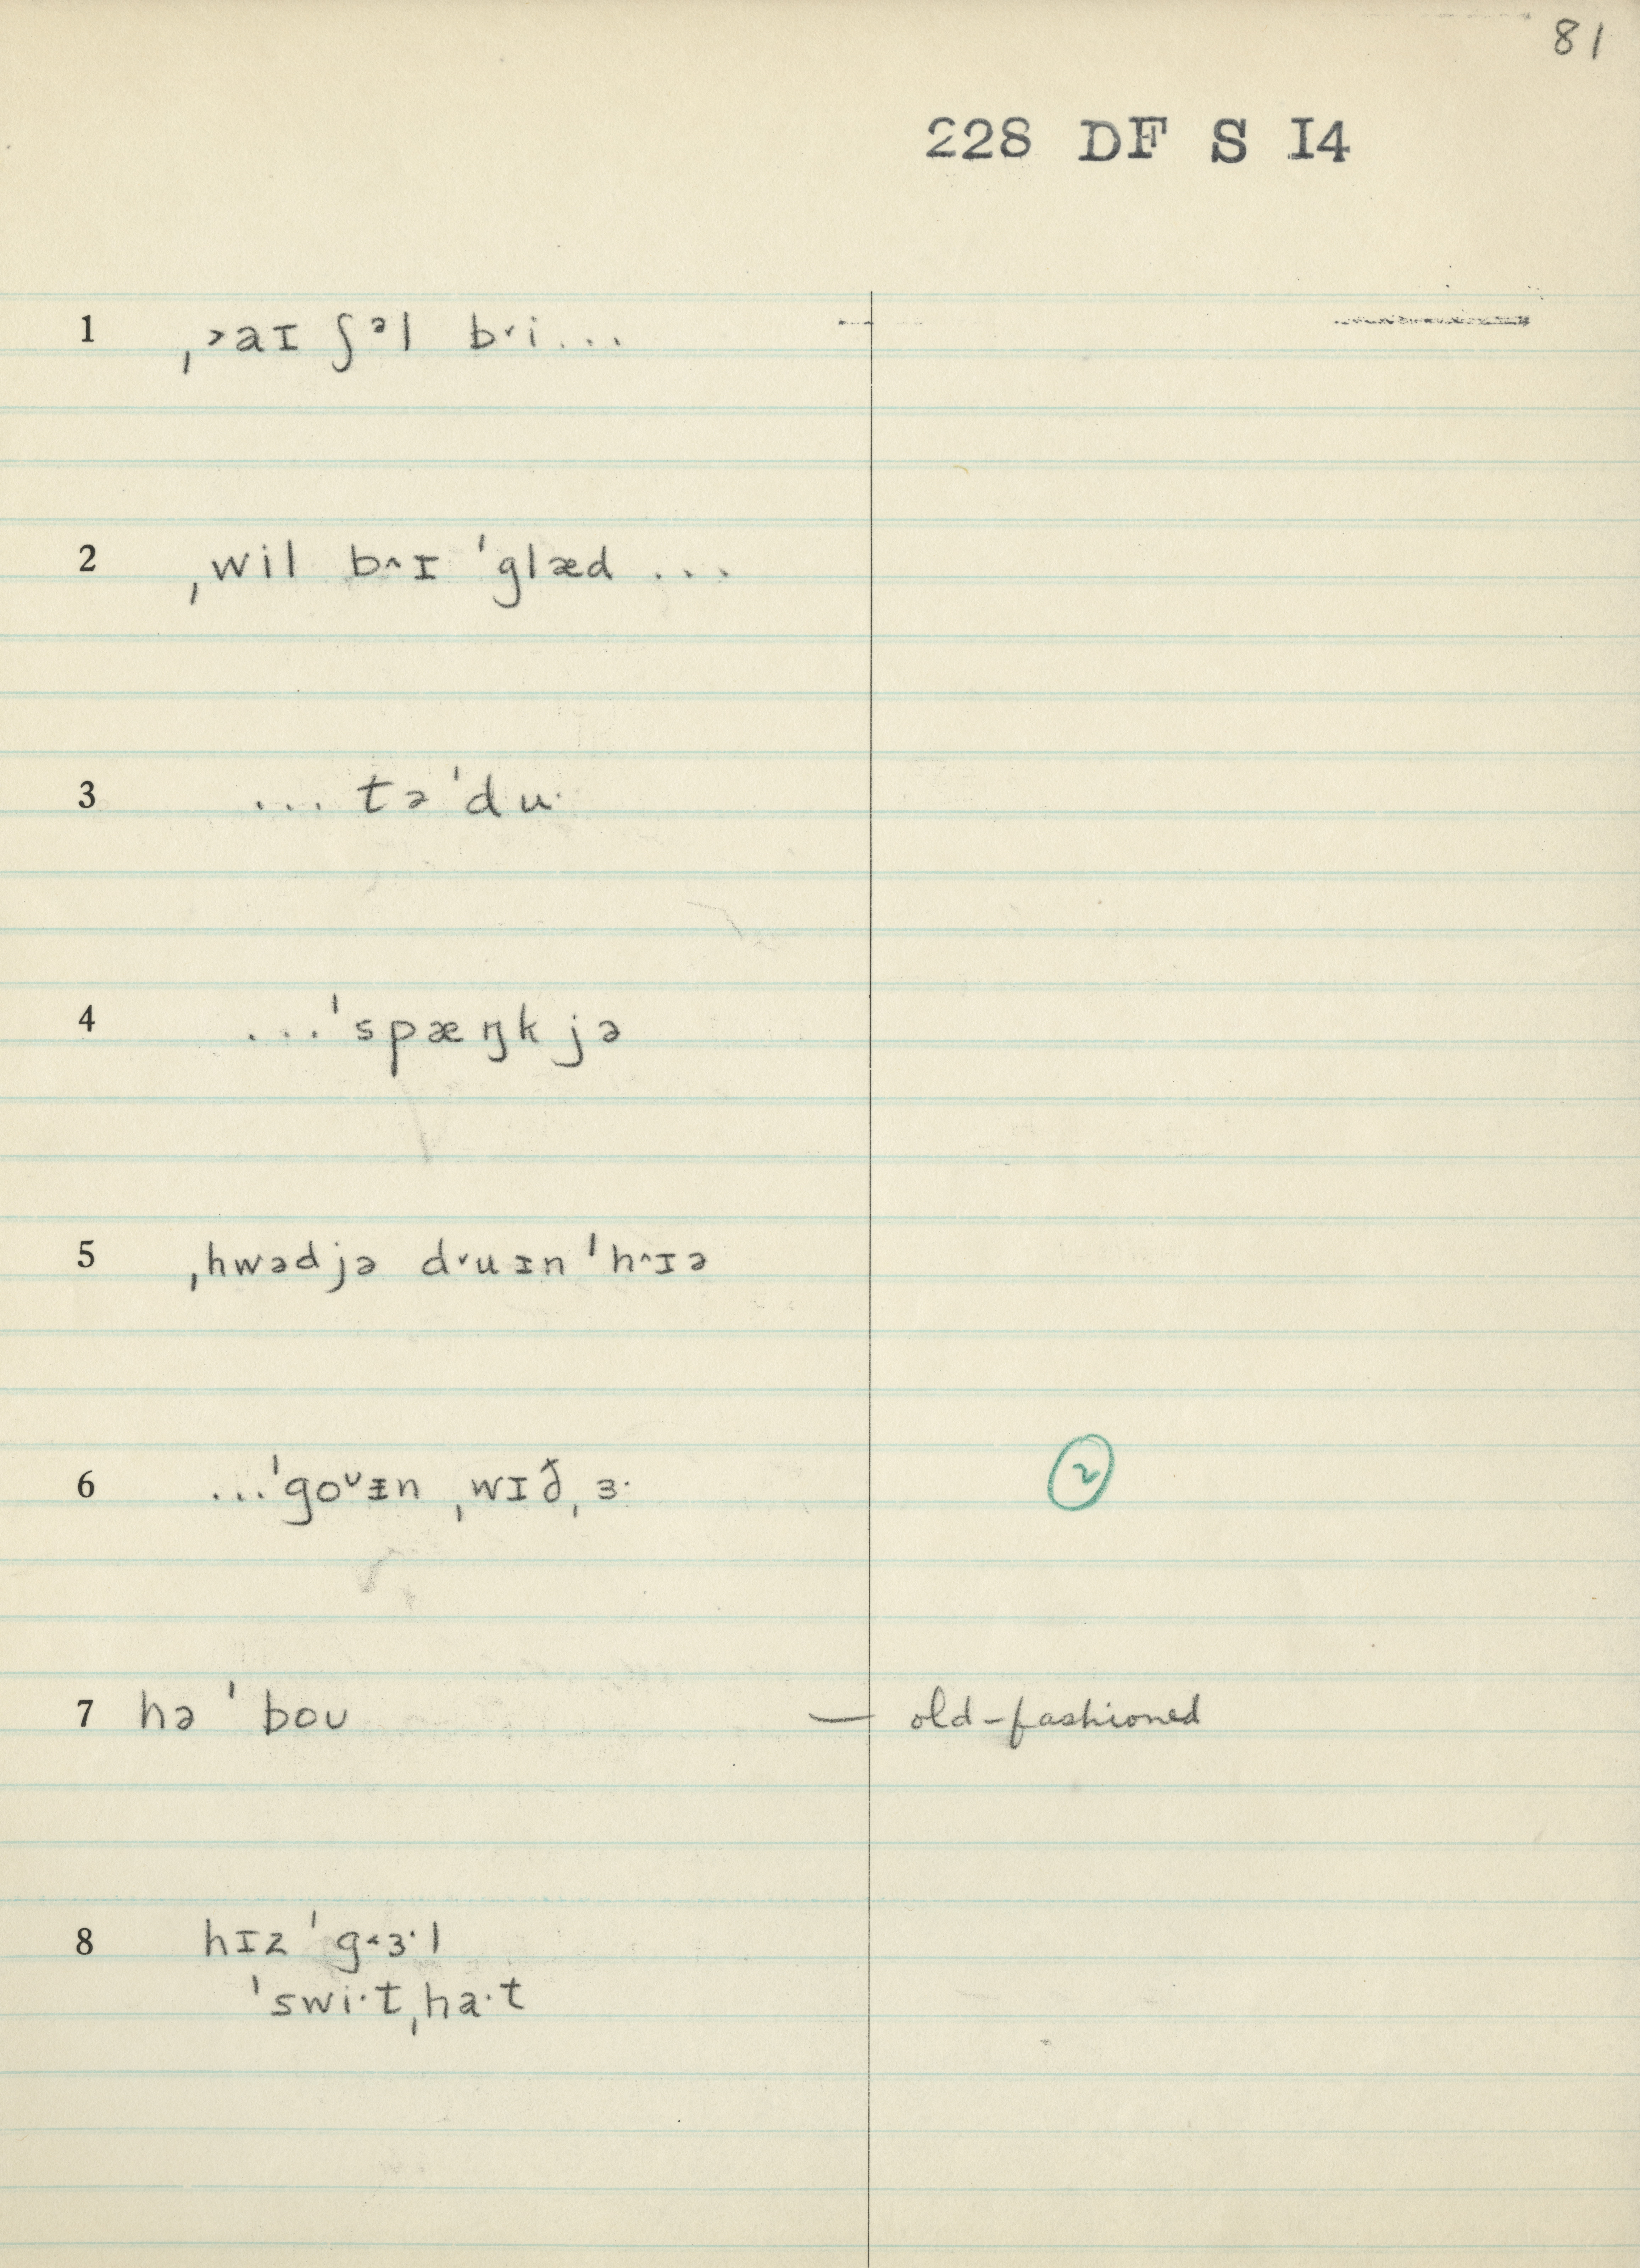 81
228 DF S I4
1 ˌ˃aɪ ʃᵊl b˅i...
2 ˌwil b˄ɪ ˈglæd ...
3 ... tə ˈdu·
4 ...ˈspæŋk jə
5 ˌhwədjə d˅uɪn ˈh˄ɪə
6 ...ˈgoᶸɪn ˌwɪðˌɜ· ②
7 hə ˈbou — old-fashioned
8 hɪz ˈg˂ɜ·l
ˈswi·tˌha·t